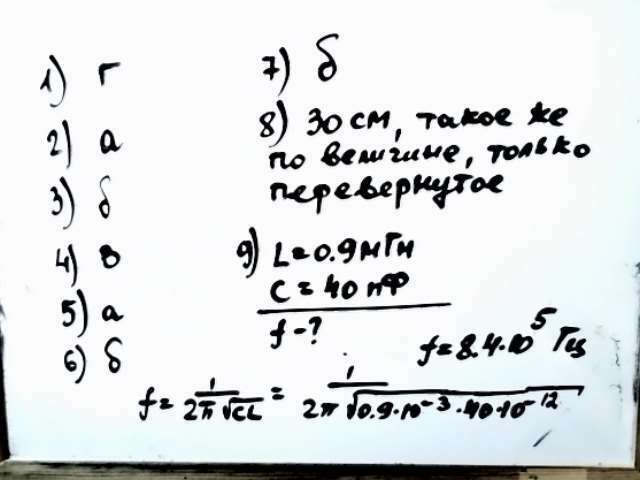 1) г
2) а
3) б
4) в
5) а
6) б
7) б
8) 30 см, такое же
по величине, только
перевернутое
9) L=0.9мГн
C=40пФ
f-?
f=8.4·10⁵ Гц
f=1/(2π√CL)=1/(2π√(0.9·10⁻³·40·10⁻¹²))